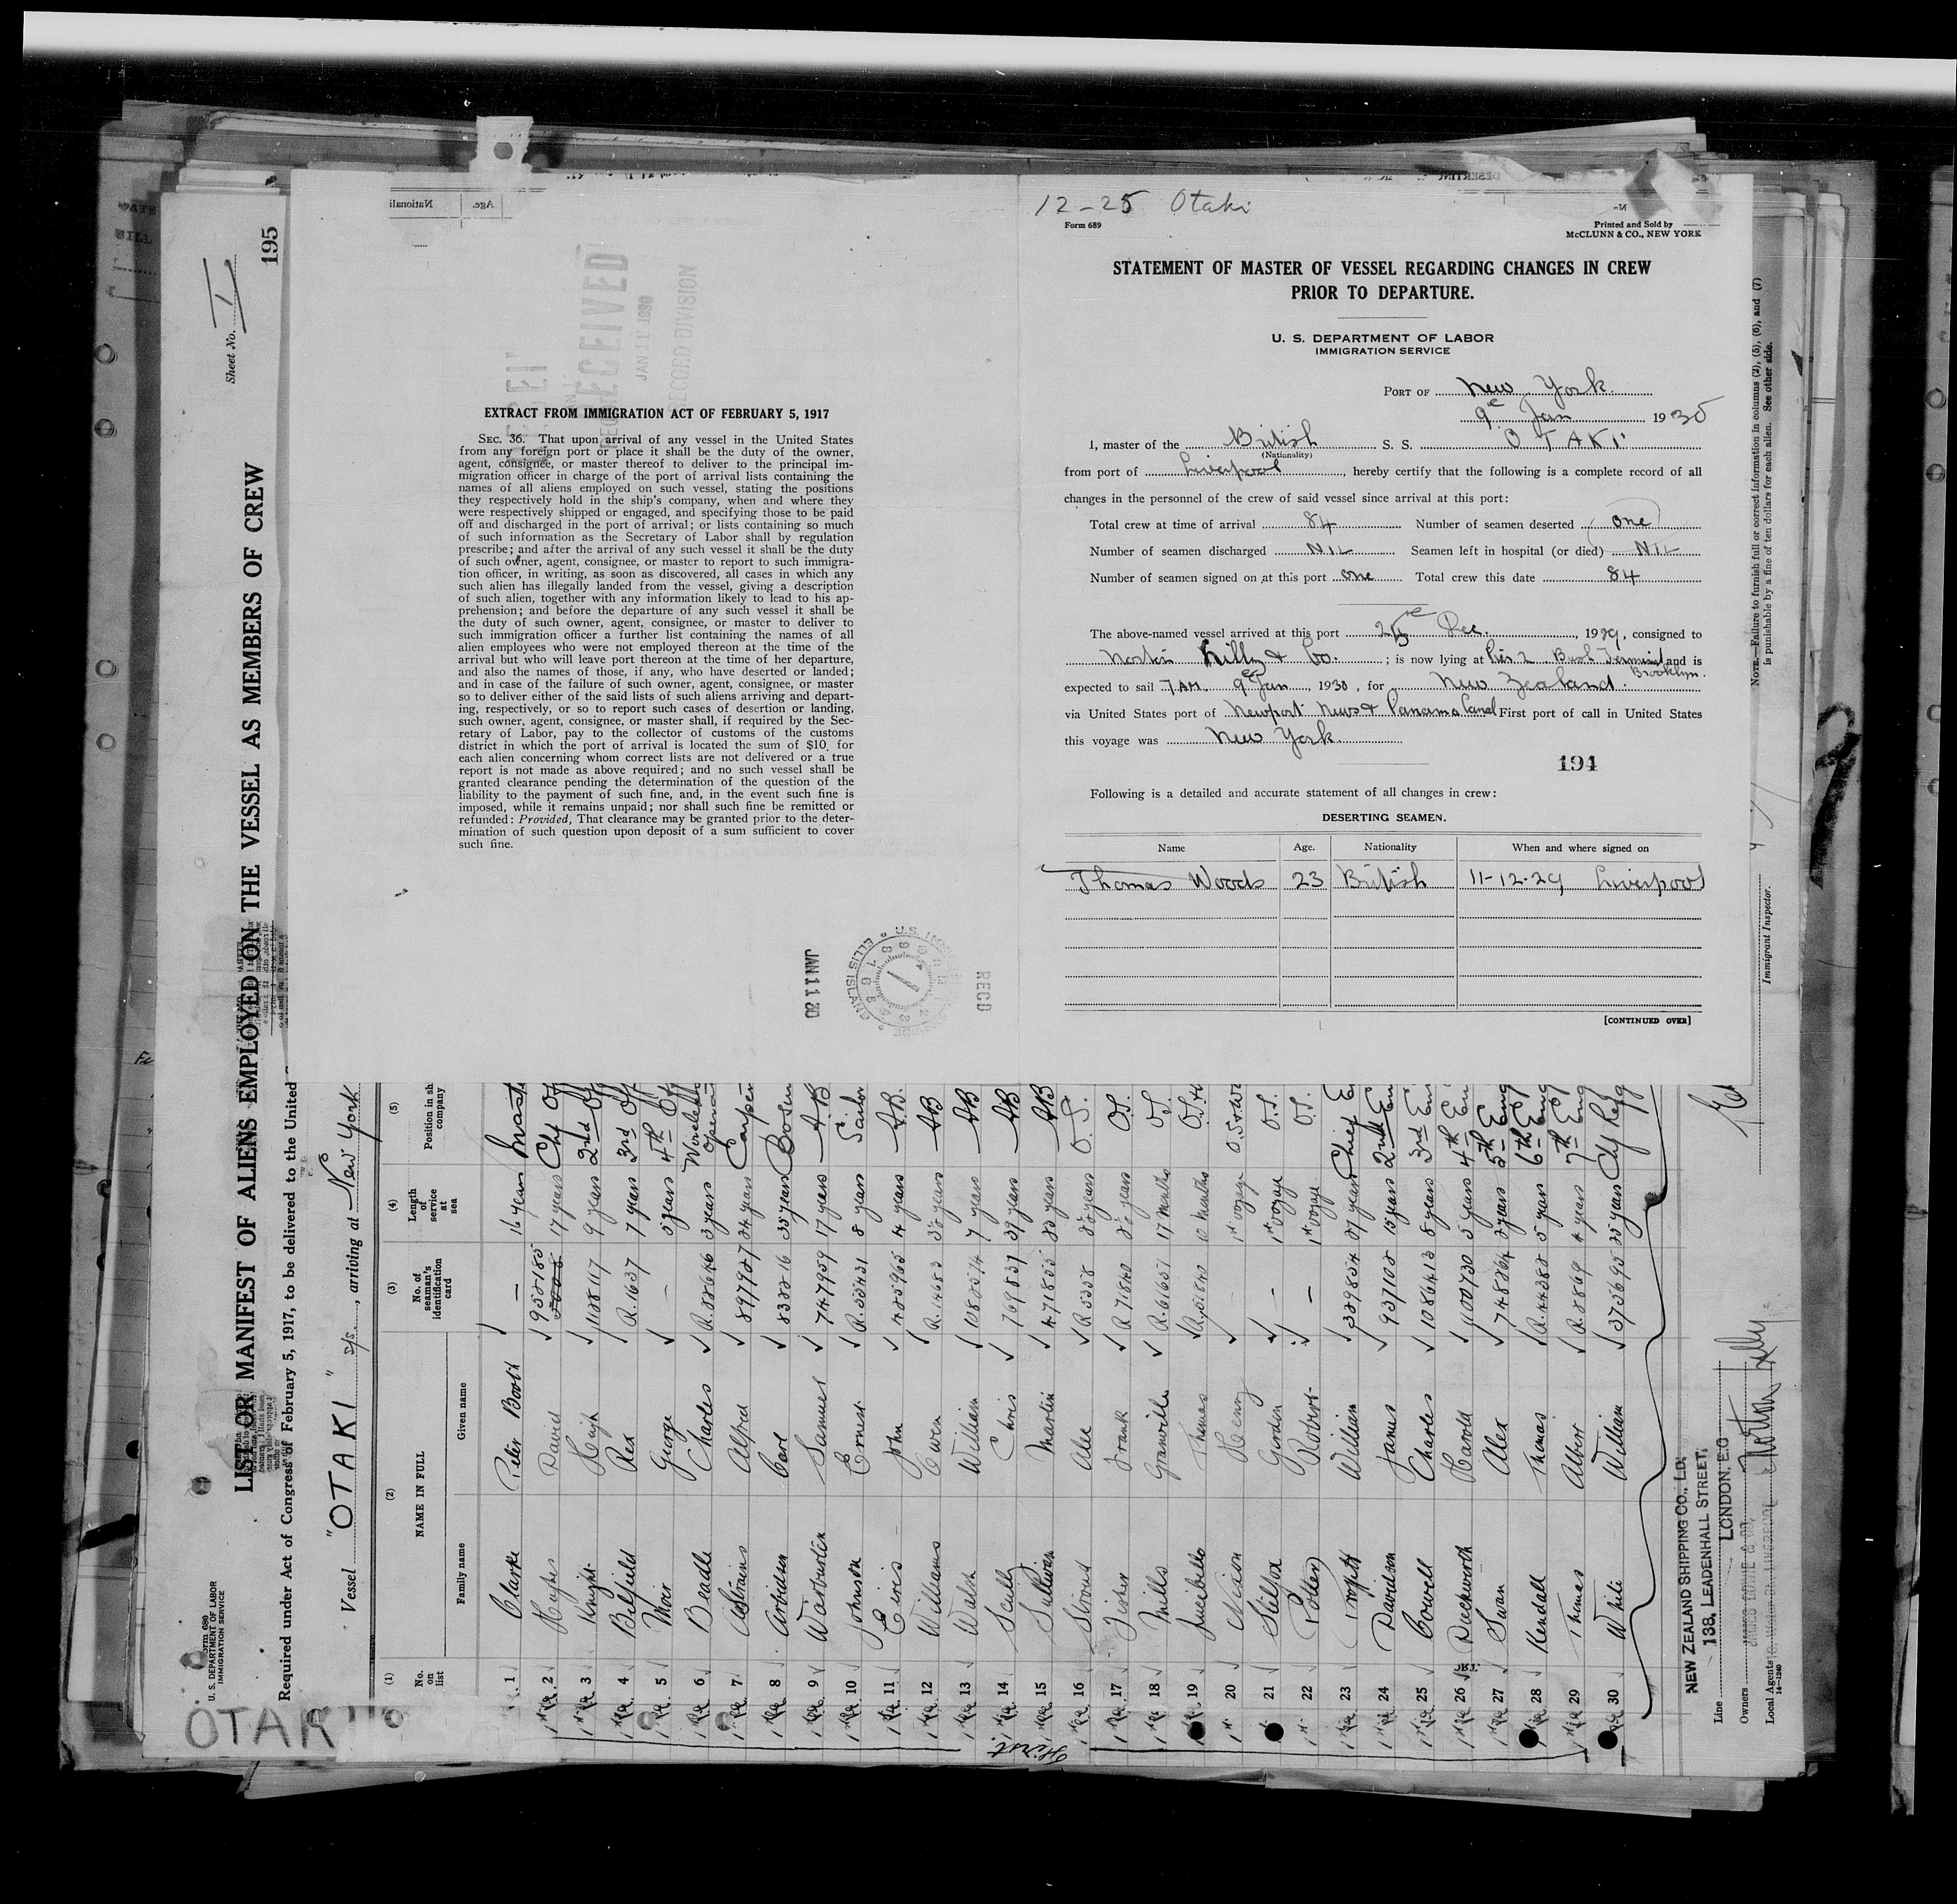 12-25 Otaki
Form 689
Printed and Sold by
McCLUNN & CO., NEW YORK
STATEMENT OF MASTER OF VESSEL REGARDING CHANGES IN CREW
PRIOR TO DEPARTURE.
U. S. DEPARTMENT OF LABOR
IMMIGRATION SERVICE
PORT OF New York
9th Jan 1930
I, master of the British S. S. OTAKI
(Nationality)
from port of Liverpool, hereby certify that the following is a complete record of all
changes in the personnel of the crew of said vessel since arrival at this port:
Total crew at time of arrival 84 Number of seamen deserted one
Number of seamen discharged NIL Seamen left in hospital (or died) NIL
Number of seamen signed on at this port one Total crew this date 84
The above-named vessel arrived at this port 25 Dec. 1929, consigned to
Norton Lilly & Co. ; is now lying at Pier 2 Bush Terminal and is
Brooklyn.
expected to sail 7 AM. 9 Jan, 1930, for New Zealand.
via United States port of Newport News & Panama Canal First port of call in United States
this voyage was New York.
194
Following is a detailed and accurate statement of all changes in crew:
DESERTING SEAMEN.
Name Age. Nationality When and where signed on
Thomas Woods 23 British 11-12-29 Liverpool
[CONTINUED OVER]
EXTRACT FROM IMMIGRATION ACT OF FEBRUARY 5, 1917
SEC. 36. That upon arrival of any vessel in the United States
from any foreign port or place it shall be the duty of the owner,
agent, consignee, or master thereof to deliver to the principal im-
migration officer in charge of the port of arrival lists containing the
names of all aliens employed on such vessel, stating the positions
they respectively hold in the ship's company, when and where they
were respectively shipped or engaged, and specifying those to be paid
off and discharged in the port of arrival; or lists containing so much
of such information as the Secretary of Labor shall by regulation
prescribe; and after the arrival of any such vessel it shall be the duty
of such owner, agent, consignee, or master to report to such immigra-
tion officer, in writing, as soon as discovered, all cases in which any
such alien has illegally landed from the vessel, giving a description
of such alien, together with any information likely to lead to his ap-
prehension; and before the departure of any such vessel it shall be
the duty of such owner, agent, consignee, or master to deliver to
such immigration officer a further list containing the names of all
alien employees who were not employed thereon at the time of the
arrival but who will leave port thereon at the time of her departure,
and also the names of those, if any, who have deserted or landed;
and in case of the failure of such owner, agent, consignee, or master
so to deliver either of the said lists of such aliens arriving and depart-
ing, respectively, or so to report such cases of desertion or landing,
such owner, agent, consignee, or master shall, if required by the Sec-
retary of Labor, pay to the collector of customs of the customs
district in which the port of arrival is located the sum of $10 for
each alien concerning whom correct lists are not delivered or a true
report is not made as above required; and no such vessel shall be
granted clearance pending the determination of the question of the
liability to the payment of such fine, and, in the event such fine is
imposed, while it remains unpaid; nor shall such fine be remitted or
refunded: Provided, That clearance may be granted prior to the deter-
mination of such question upon deposit of a sum sufficient to cover
such fine.
RECEIVED
JAN 11 1930
RECORD DIVISION
JAN 11 30
ELLIS ISLAND
REC'D
Sheet No. 1
195
U. S. DEPARTMENT OF LABOR
IMMIGRATION SERVICE
LIST OR MANIFEST OF ALIENS EMPLOYED ON THE VESSEL AS MEMBERS OF CREW
Required under Act of Congress of February 5, 1917, to be delivered to the United
Vessel "OTAKI" S/S, arriving at New York
(1) (2) (3) (4) (5)
No. on list NAME IN FULL No. of seaman's identification card Length of service at sea Position in sh company
Family name Given name
1 Clarke Peter Booth — 16 years Mast
2 Hughes David 952185 17 years Chf Off
3 Knight Hugh 1128117 9 years 2nd Off
4 Belfield Rex R.1637 7 years 3rd Off
5 Moir George — 5 years 4th Off
6 Beadle Charles R.28646 3 years Wireless Operator
7 Strains Alfred 897727 24 years Carpen
8 Carl 832216 35 years Bosun
9 Warburton Samuel 747959 17 years A.B
10 Johnson Ernest R.55431 8 years Sailor
11 John 425965 4 years A.B.
12 Williams Owen R.14683 30 years AB
13 Walsh William 1082574 7 years AB
14 Scully Chris 769837 39 years AB
15 Sullivan Martin 471855 20 years AB
16 Stroud Alec R5358 2 years O.S.
17 Fisher Frank R71840 2 years O.S.
18 Mills Granville R.61651 17 months O.S.
19 Thomas R.51840 10 months O.S.
20 Nixon Henry — 1st voyage
21 Stelfox Gordon — 1st voyage O.S.
22 Potter Robert — 1st voyage O.S.
23 William 329854 27 years Chief E
24 Davidson James 937102 15 years 2nd En
25 Cowell Charles 1086413 8 years 3rd En
26 Duckworth Harold 1100730 5 years 4th En
27 Swan Alex 748864 2 years 5th Eng
28 Kendall Thomas R.44382 5 years 6th Eng
29 Thomas Albert R.2869 4 years 7th Eng
30 White William 375695 25 years Chf Refg
NEW ZEALAND SHIPPING CO., LD.
138, LEADENHALL STREET,
LONDON, E.C
Line
Owners
Local Agents Norton Lilly
14-1240
Immigrant Inspector.
NOTE.—Failure to furnish full or correct information in columns (2), (5), (6), and (7)
is punishable by a fine of ten dollars for each alien. See other side.
OTAKI
First